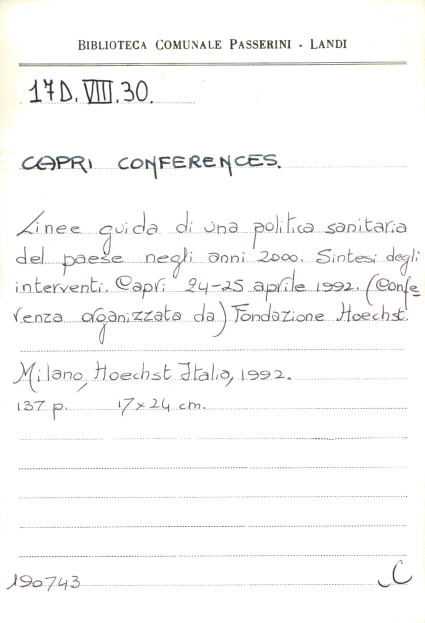 BIBLIOTECA COMUNALE PASSERINI - LANDI
17D.VIII.30.
CAPRI CONFERENCES.
Linee guida di una politica sanitaria
del paese negli anni 2000. Sintesi degli
interventi. Capri 24-25 aprile 1992. (Confe
renza organizzata da) Fondazione Hoechst.
Milano, Hoechst Italia, 1992.
137 p. 17x24 cm.
190743 C